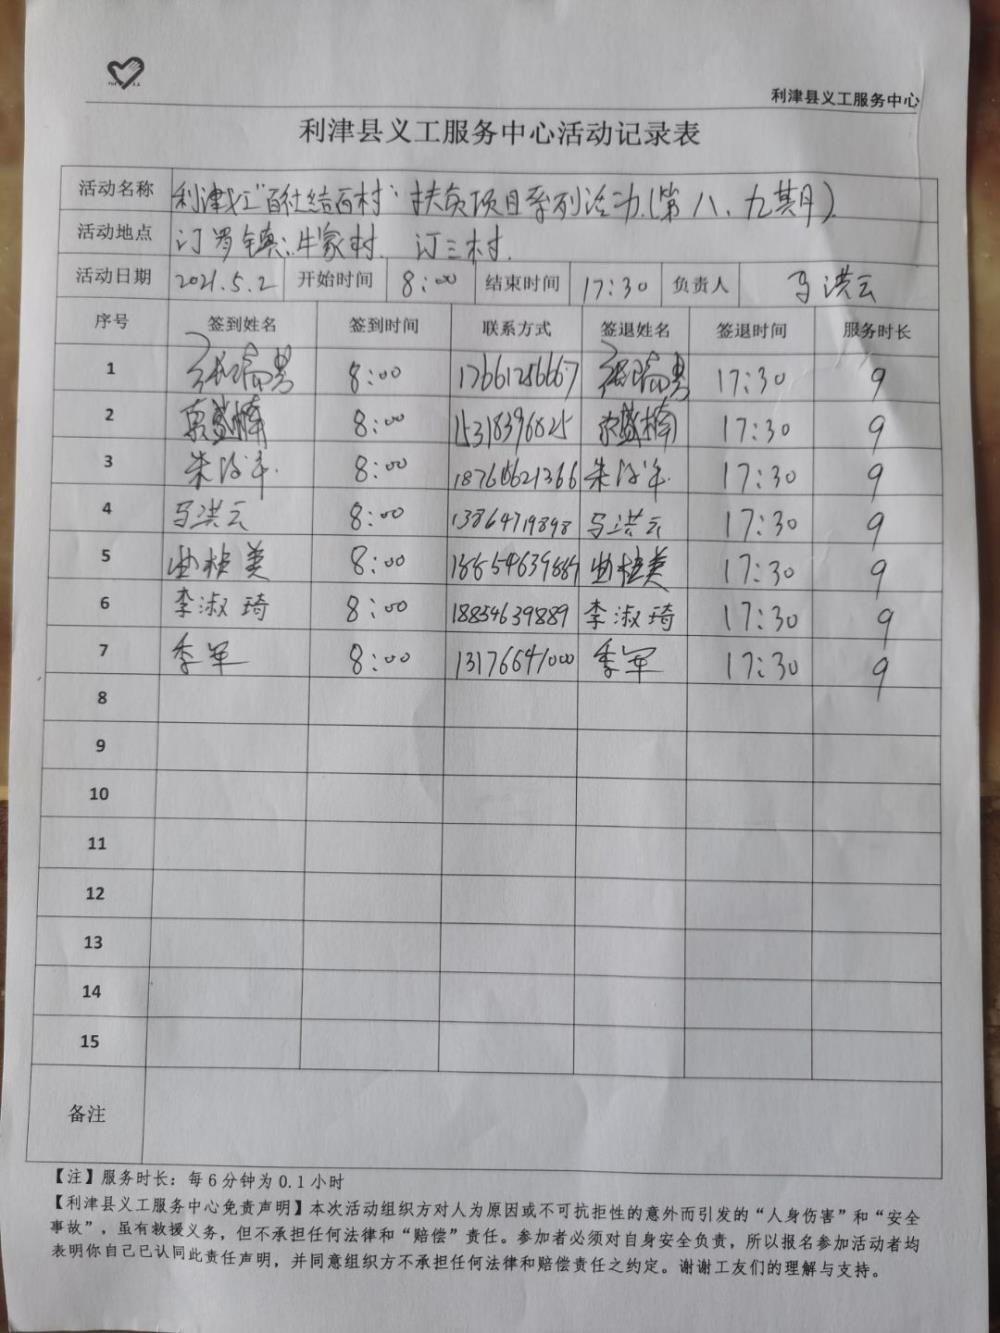 利津县义工服务中心
利津县义工服务中心活动记录表
活动名称 利津义工"百社结百村"扶贫项目系列活动(第八、九期)
活动地点 汀罗镇:牛家村 汀三村
活动日期 2021.5.2 开始时间 8:00 结束时间 17:30 负责人 马洪云
序号 签到姓名 签到时间 联系方式 签退姓名 签退时间 服务时长
1 8:00 17661286667 17:30 9
2 8:00 15318396825 17:30 9
3 8:00 18766621366 17:30 9
4 马洪云 8:00 13864719898 马洪云 17:30 9
5 曲桂美 8:00 18854639889 曲桂美 17:30 9
6 李淑琦 8:00 18854639889 李淑琦 17:30 9
7 季军 8:00 13176641000 季军 17:30 9
8
9
10
11
12
13
14
15
备注
【注】服务时长:每6分钟为0.1小时
【利津县义工服务中心免责声明】本次活动组织方对人为原因或不可抗拒性的意外而引发的“人身伤害”和“安全
事故”,虽有救援义务,但不承担任何法律和“赔偿”责任。参加者必须对自身安全负责,所以报名参加活动者均
表明你自己已认同此责任声明,并同意组织方不承担任何法律和赔偿责任之约定。谢谢工友们的理解与支持。